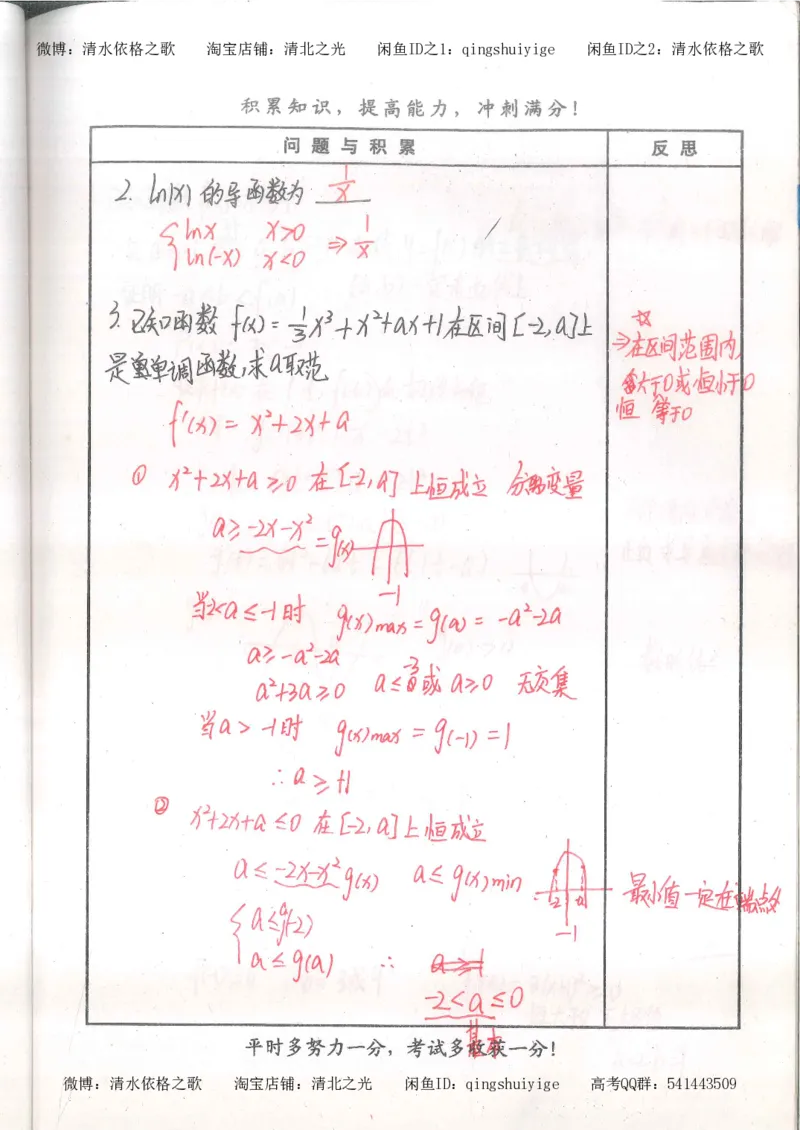 微博：清水依格之歌 淘宝店铺：清北之光 闲鱼ID之1：qingshuiyige 闲鱼ID之2：清水依格之歌
积累知识，提高能力，冲刺满分！
问题与积累 反思
2. ln|x| 的导函数为 1/x
{ lnx x>0
ln(-x) x<0 ⇒ 1/x
3. 已知函数 f(x) = 1/3 x³ + x² + ax + 1 在区间 [-2, a] 上
是单调函数, 求 a 取范
☆
⇒ 在区间范围内,
大于0或恒小于0
恒 等于0
f'(x) = x² + 2x + a
① x² + 2x + a ≥ 0 在 [-2, a] 上恒成立 分离变量
a ≥ -2x - x² = g(x)
-1
当-2<a ≤ -1时 g(x)max = g(a) = -a² - 2a
a ≥ -a² - 2a
a² + 3a ≥ 0 a ≤ -3 或 a ≥ 0 无交集
当 a > -1时 g(x)max = g(-1) = 1
∴ a ≥ +1
② x² + 2x + a ≤ 0 在 [-2, a] 上恒成立
a ≤ -2x - x² g(x) a ≤ g(x)min
-2 a
-1
最小值一定在端点处
{ a ≤ g(-2)
a ≤ g(a) ∴ a ≥ 1
-2 < a ≤ 0
平时多努力一分，考试多收获一分！
微博：清水依格之歌 淘宝店铺：清北之光 闲鱼ID：qingshuiyige 高考QQ群：541443509